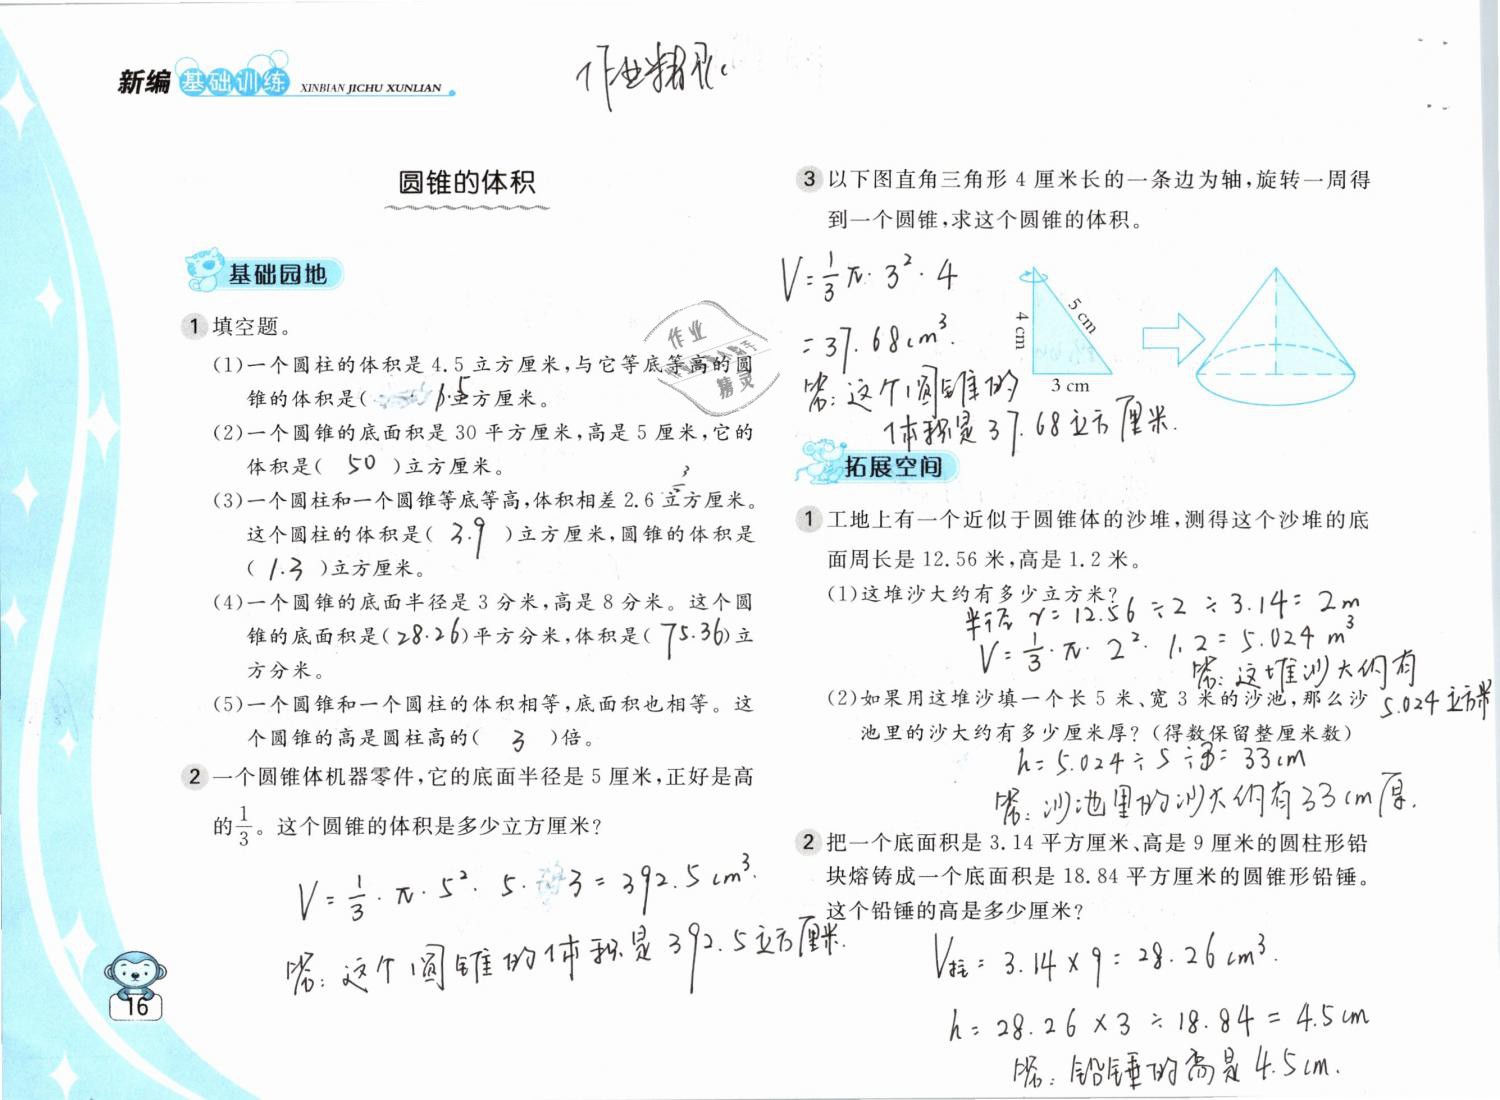 新编 基础训练 XINBIAN JICHU XUNLIAN
作业精灵
圆锥的体积
基础园地
1 填空题。
(1)一个圆柱的体积是 4.5 立方厘米,与它等底等高的圆
锥的体积是( 1.5 )立方厘米。
(2)一个圆锥的底面积是 30 平方厘米,高是 5 厘米,它的
体积是( 50 )立方厘米。
(3)一个圆柱和一个圆锥等底等高,体积相差 2.6 立方厘米。
这个圆柱的体积是( 3.9 )立方厘米,圆锥的体积是
( 1.3 )立方厘米。
(4)一个圆锥的底面半径是 3 分米,高是 8 分米。这个圆
锥的底面积是(28.26)平方分米,体积是(75.36)立
方分米。
(5)一个圆锥和一个圆柱的体积相等,底面积也相等。这
个圆锥的高是圆柱高的( 3 )倍。
2 一个圆锥体机器零件,它的底面半径是 5 厘米,正好是高
的1/3。这个圆锥的体积是多少立方厘米?
V=1/3·π·5²·5·3=392.5cm³.
答:这个圆锥的体积是392.5立方厘米.
16
3 以下图直角三角形 4 厘米长的一条边为轴,旋转一周得
到一个圆锥,求这个圆锥的体积。
V=1/3π·3²·4
=37.68cm³.
答:这个圆锥的
体积是37.68立方厘米.
4 cm
5 cm
3 cm
作业
精灵
拓展空间
1 工地上有一个近似于圆锥体的沙堆,测得这个沙堆的底
面周长是 12.56 米,高是 1.2 米。
(1)这堆沙大约有多少立方米?
半径 r=12.56÷2÷3.14=2m
V=1/3·π·2²·1.2=5.024m³
答:这堆沙大约有
5.024立方米
(2)如果用这堆沙填一个长 5 米、宽 3 米的沙池,那么沙
池里的沙大约有多少厘米厚?(得数保留整厘米数)
h=5.024÷5÷3=33cm
答:沙池里的沙大约有33cm厚.
2 把一个底面积是 3.14 平方厘米、高是 9 厘米的圆柱形铅
块熔铸成一个底面积是 18.84 平方厘米的圆锥形铅锤。
这个铅锤的高是多少厘米?
V柱=3.14×9=28.26cm³.
h=28.26×3÷18.84=4.5cm
答:铅锤的高是4.5cm.